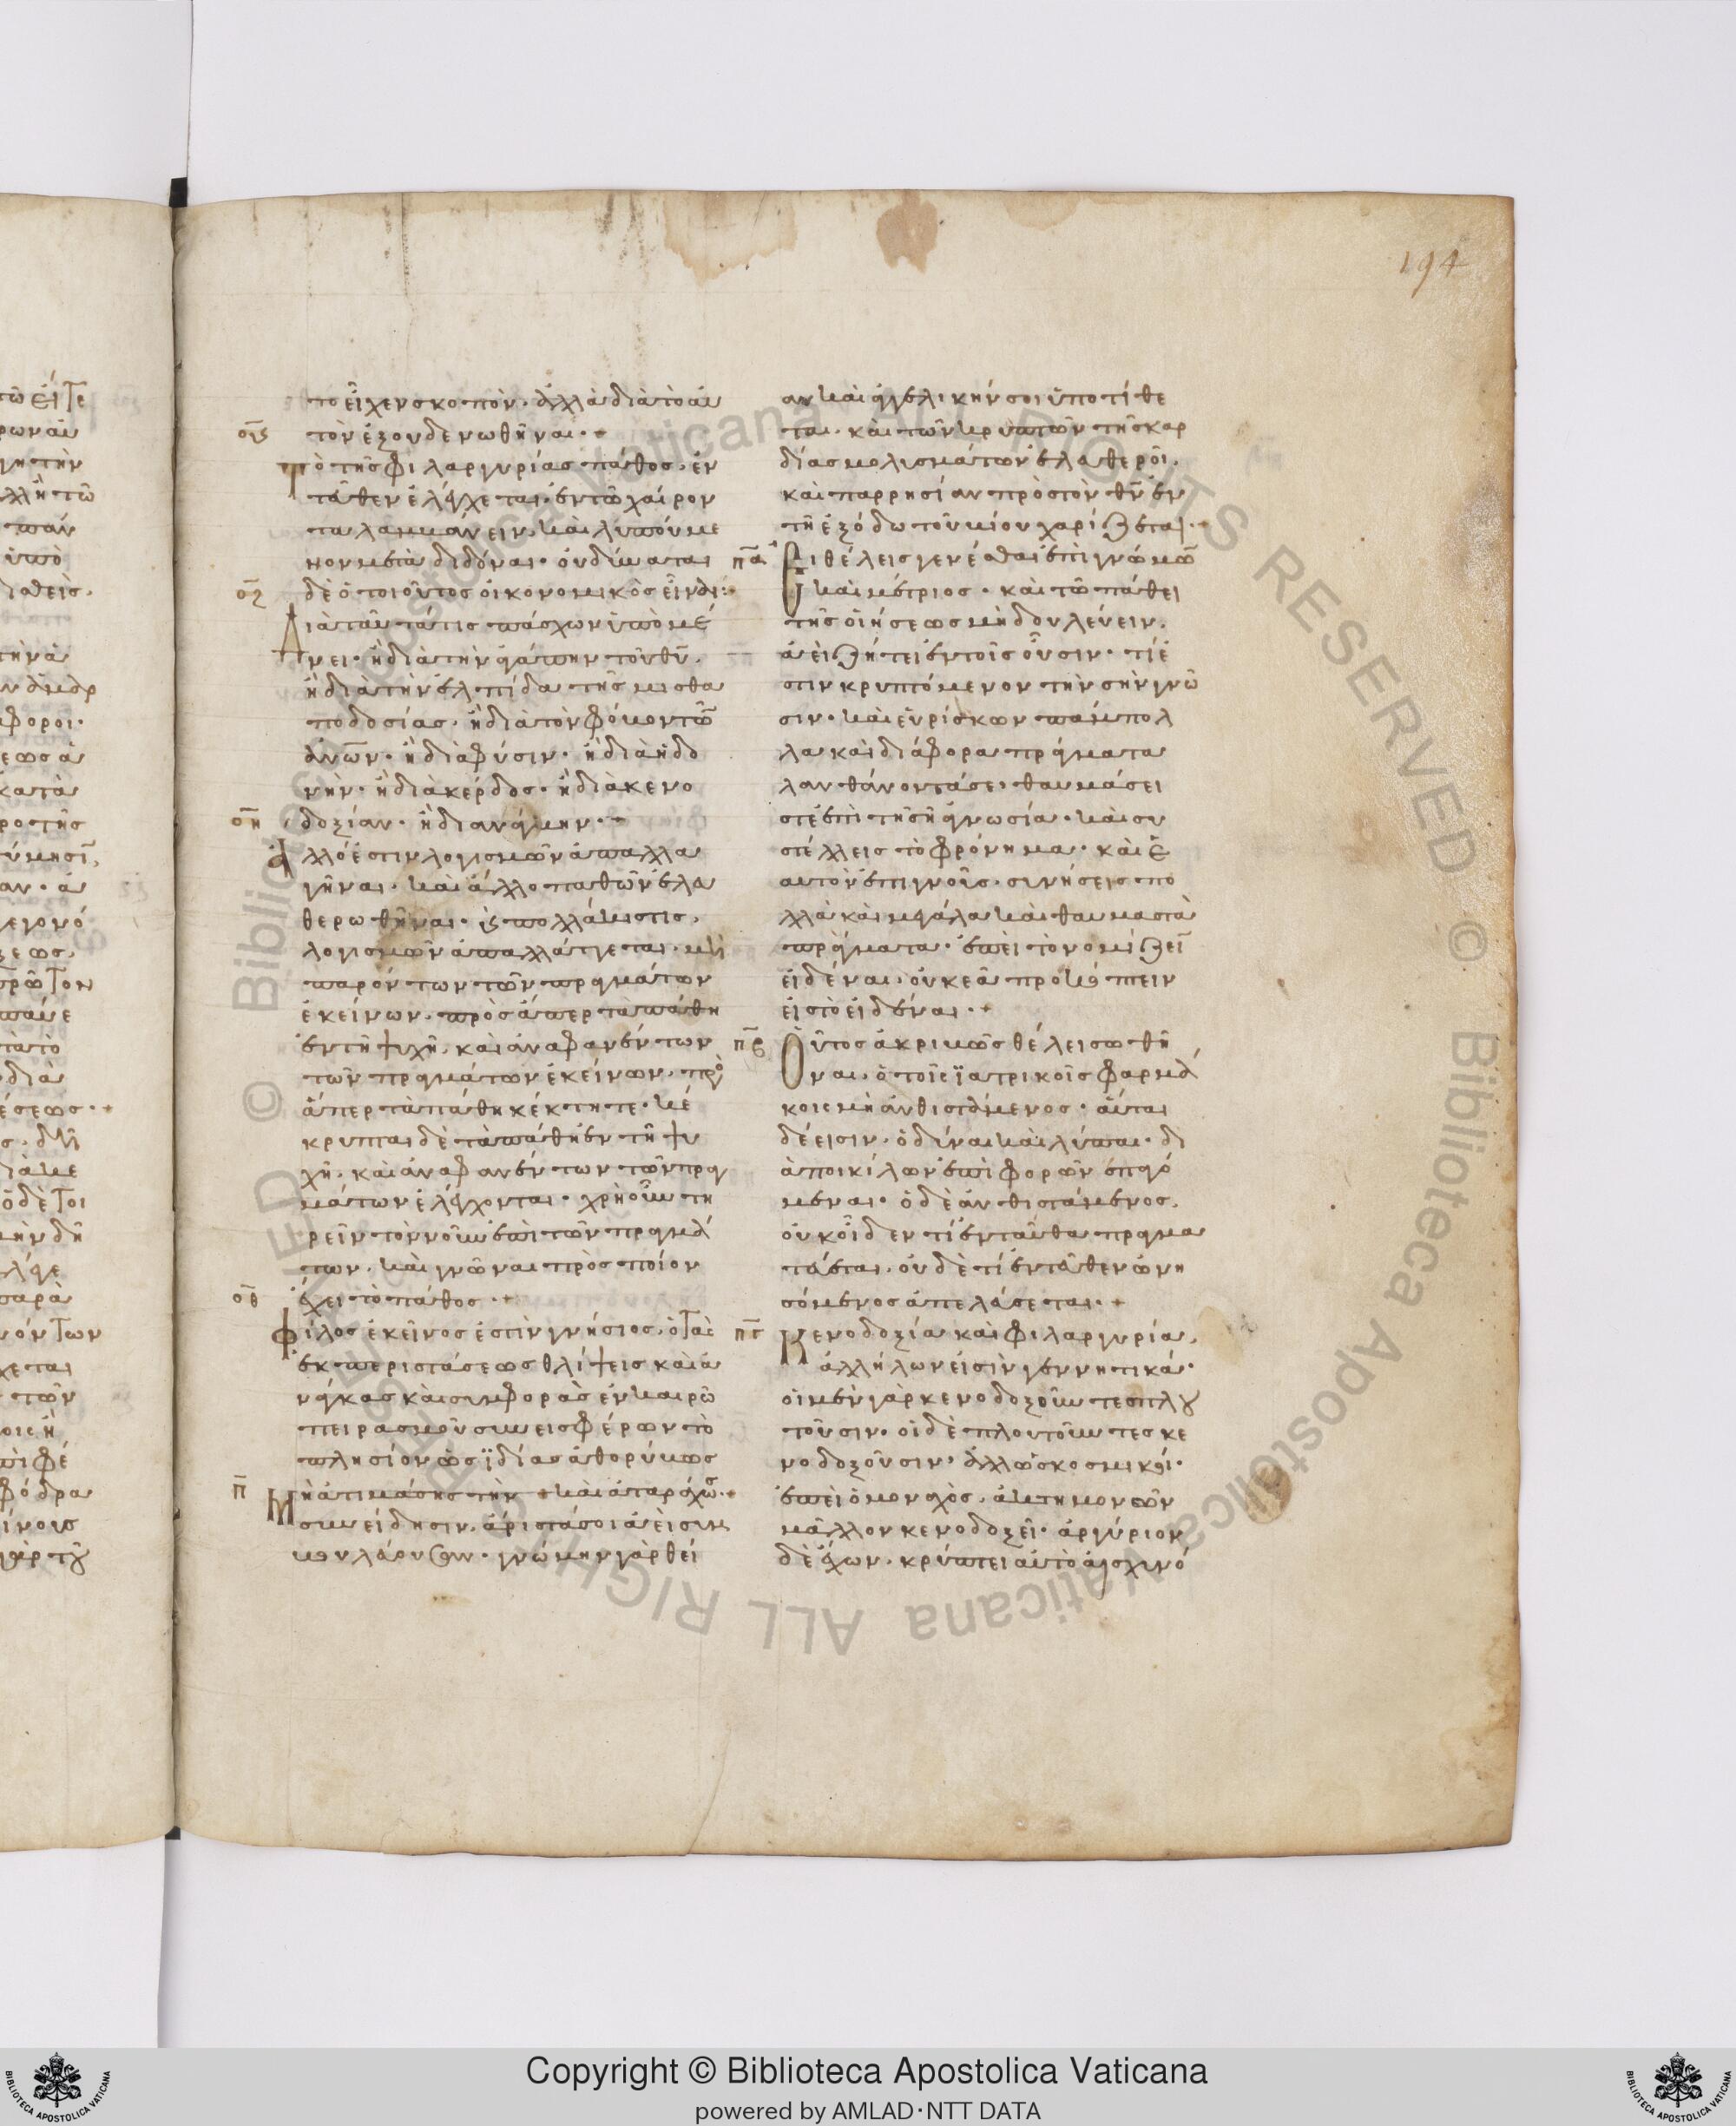 194
το εἶχεν σκοπὸν· ἀλλὰ διὰ τὸ αυ
τὸν ἐξουδενωθῆναι·+
οϛ
Τὸ τῆς φιλαργυρίας πάθος, ἐν
τεῦθεν ἐλέγχεται· ἐν τῶ χαίρον
τα λαμβάνειν, καὶ λυπούμε
νον μετὰ διδόναι· οὐ δύναται
δὲ ὁ τοιοῦτος οἰκονομικὸς εἶναι:+
οζ
Διὰ ταῦτά τις πάσχων ὑπομέ
νει· ἢ διὰ τὴν ἀγάπην τοῦ θυ̅.
ἢ διὰ τὴν ἐλπίδα τῆς μισθα
ποδοσίας· ἢ διὰ τὸν φόβον τῶν
ἀνων· ἢ διὰ φύσιν· ἢ διὰ ἡδο
νὴν· ἢ διὰ κέρδος· ἢ διὰ κενο
δοξίαν· ἢ δι ἀνάγκην·+
οη
Ἄλλό ἐστιν λογισμῶν ἀπαλλα
γῆναι· καὶ ἄλλο παθῶν ἐλευ
θερωθῆναι·
λογισμῶν ἀπαλλάττεται· μὴ
παρόντων τῶν πραγμάτων
ἐκείνων, πρὸς ἅπερ τὰ πάθη
ἐν τῆ ψυχῆ, καὶ ἀναφανέντων
τῶν πραγμάτων ἐκείνων, πρὸ
ἅπερ τὰ πάθη κέκτηται· κέ
κρυπται δὲ τὰ πάθη ἐν τῆ ψυ
χῆ, καὶ ἀναφανέντων τῶν πραγ
μάτων ἐλέγχονται· χρὴ οὖν τη
ρεῖν τὸν νοῦν ἐπὶ τῶν πραγμά
των, καὶ γνῶναι πρὸς ποῖον
ἔχει τὸ πάθος·+
οθ
Φίλος ἐκεῖνος ἐστὶν γνήσιος, ὁ τὰς
ἐκ περιστάσεως θλίψεις καὶ ἀ
νάγκας καὶ συμφορὰς ἐν καιρῶ
πειρασμοῦ συνεισφέρων τὸ
πλησίον ὡς ϊδίας ἀθορύβως
καὶ ἀταράχως·+
π
Μὴ ἀτιμάσης τὴν
συνείδησιν, ἄριστά σοι ἀεὶ συμ
βουλεύουσαν· γνώμην γὰρ θεί
αν καὶ ἀγγελικήν σοι ὑποτίθε
ται· καὶ τῶν κρυπτῶν τῆς καρ
δίας μολυσμάτων ἐλευθεροῖ·
καὶ παρρησίαν πρὸς τὸν θν̅ ἐν
τῆ ἐξόδω τοῦ βίου χαρίζεται·+
πα
Εἰ θέλεις γενέσθαι ἐπιγνώμων
καὶ μέτριος· καὶ τῶ πάθει
τῆς οἰήσεως μὴ δουλεύειν,
ἀεὶ ζήτει ἐν τοῖς οὖσιν· τί ἐ
στιν κρυπτόμενον τὴν σὴν γνῶ
σιν· καὶ εὑρίσκων πάμπολ
λα καὶ διάφορα πράγματα
λανθάνοντά σε, θαυμάσει
στε ἐπὶ τῆ σῆ ἀγνωσία· καὶ συ
στέλλεις τὸ φρόνημα· καὶ ἑ
αυτὸν ἐπιγνοῖς· συνήσεις πο
λλὰ καὶ μεγάλα καὶ θαυμαστὰ
πράγματα· ἐπεὶ τὸ νομίζειν
εἰδέναι, οὐκ ἐᾶ προκόπτειν
εἰς τὸ εἰδέναι·+
πβ
Οὗτος ἀκριβῶς θέλει σωθῆ
ναι, ὁ τοῖς ϊατρικοῖς φαρμά
κοις μὴ ἀνθιστάμενος· αὗται
δέ εἰσιν, ὀδύναι καὶ λύπαι· δι
ὰ ποικίλων ἐπιφορῶν ἐπαγό
μεναι· ὁ δὲ ἀνθιστάμενος,
οὐκ οἶδεν τί ἐνταῦθα πραγμα
τεύεται, οὐδὲ τί ἐντεῦθεν ὠνη
σόμενος ἀπελεύσεται·+
πγ
Κενοδοξία καὶ φιλαργυρία,
ἀλλήλων εἰσὶν γεννητικά·
οἱ μὲν γὰρ κενοδοξοῦντες πλου
τοῦσιν· οἱ δὲ πλουτοῦντες κε
νοδοξοῦσιν, ἀλλ ὡς κοσμικοί·
ἐπεὶ ὁ μοναχὸς, ἀκτήμων ὢν
μᾶλλον κενοδοξεῖ· ἀργύριον
δὲ ἔχων, κρύπτει αὐτὸ αἰσχυνό
Copyright © Biblioteca Apostolica Vaticana
powered by AMLAD·NTT DATA